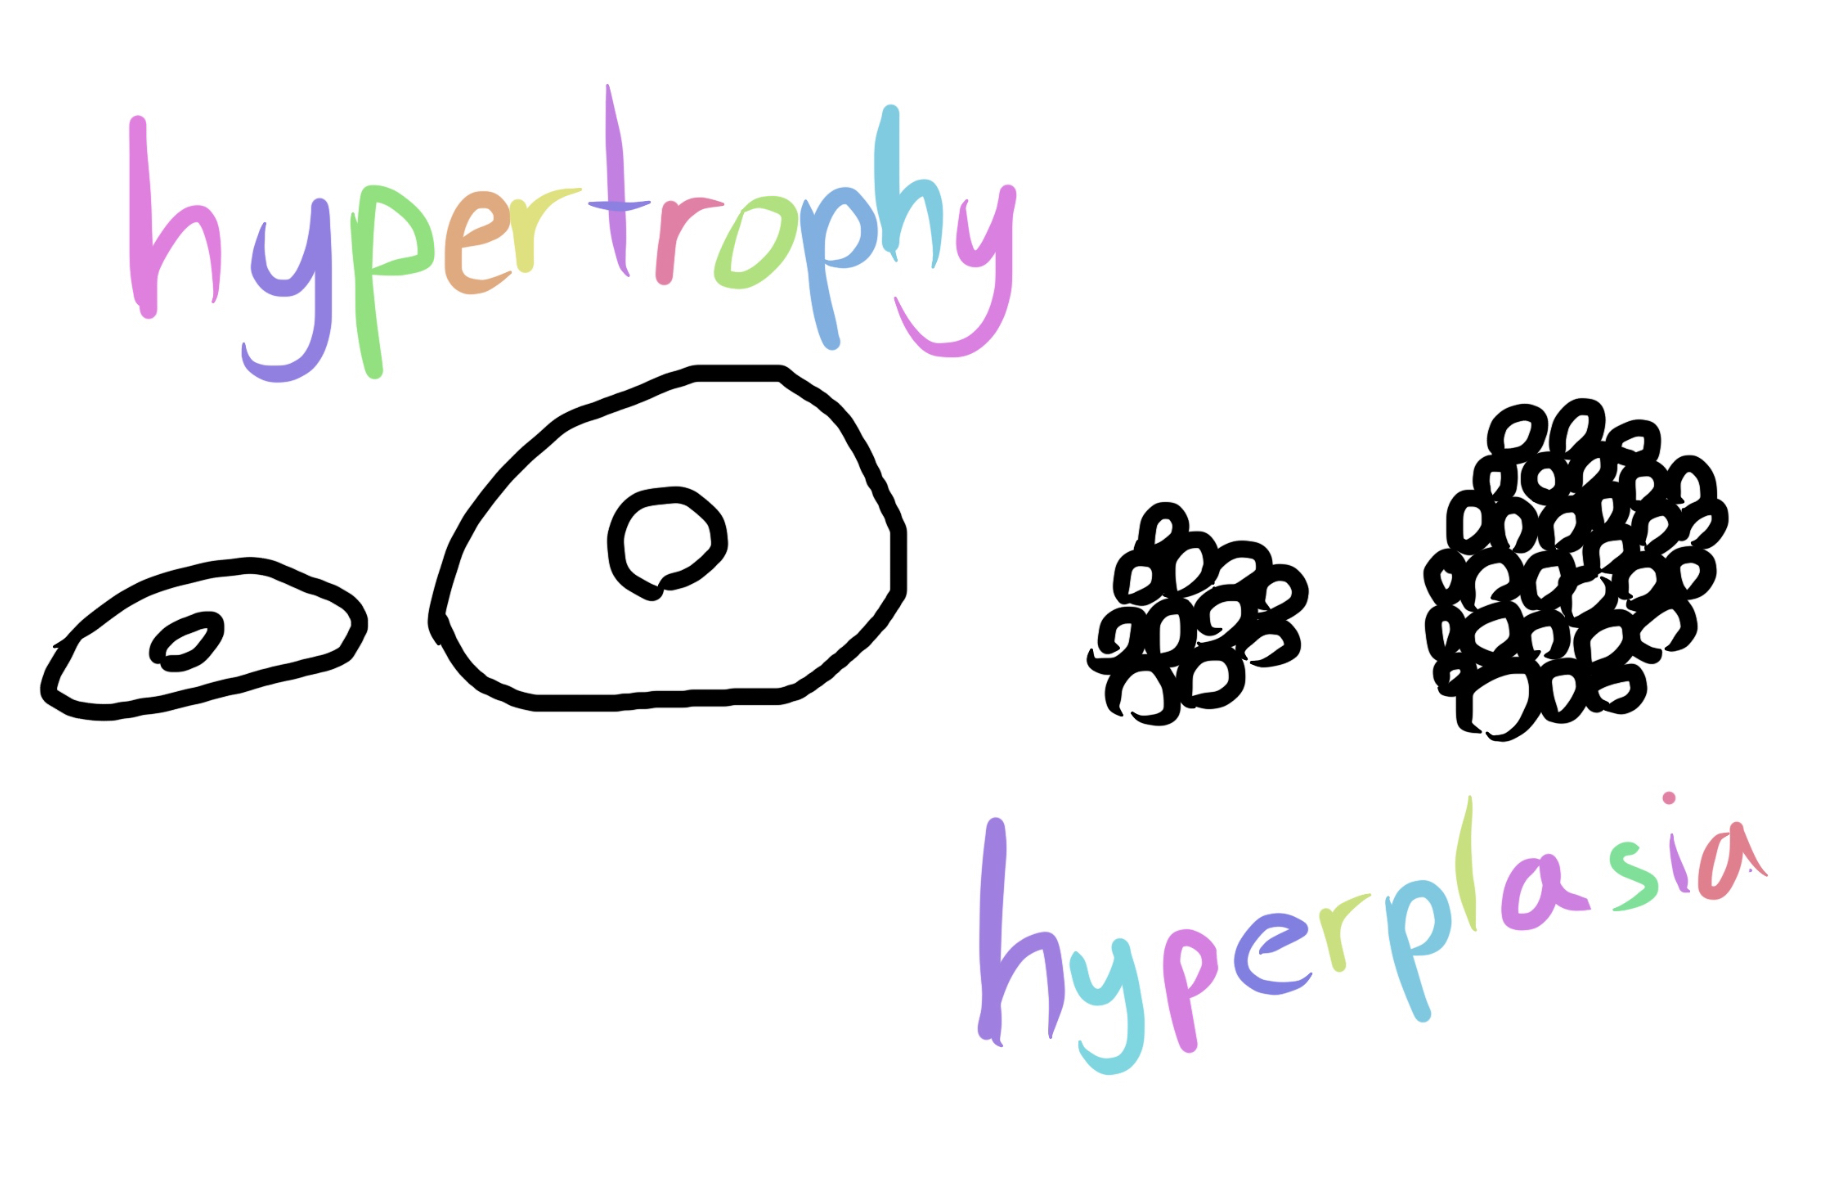 hypertrophy
hyperplasia